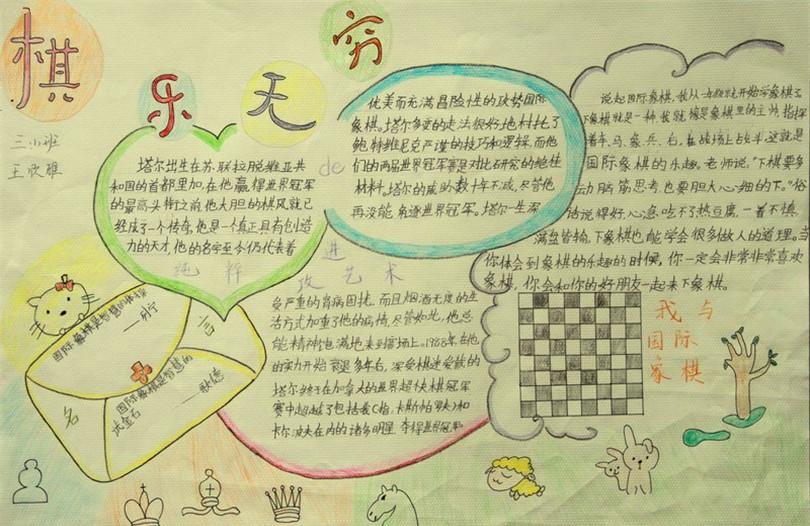 棋乐无穷
三小班
王欣雅
塔尔出生在苏联拉脱维亚共
和国的首都里加,在他赢得世界冠军
的最高头衔之前,他大胆的棋风就已
经成了一个传奇,他是一个真正具有创造
力的天才,他的名字至今仍代表着
纯粹 de 进
攻艺术
优美而充满冒险性的攻势国际
象棋。塔尔多变的走法很好地衬托了
鲍特维尼克严谨的技巧和逻辑,而他
们的两届世界冠军赛是对比研究的绝佳
材料。塔尔的威胁数十年不减,尽管他
再没能角逐世界冠军。塔尔一生深
受严重的肾病困扰,而且烟酒无度的生
活方式加重了他的病情,尽管如此,他总
能精神饱满地来到赛场上。1988年,在他
的实力开始衰退多年后,深受棋迷爱戴的
塔尔终于在加拿大的世界超快棋冠军
赛中超越了包括着(格,卡斯帕罗夫)和
卡尔波夫在内的诸多明星,夺得世界冠军
说起国际象棋,我从一年级就开始学象棋了
下象棋就是一种,我就像是象棋里的主帅,指挥
着车、马、象、兵、后,在战场上战斗,这就是
国际象棋的乐趣。老师说:“下棋要多
动脑筋思考,也要胆大心细的下。”俗
话说得好,心急吃不了热豆腐,一着不慎,
满盘皆输,下象棋也能学会很多做人的道理。当
你体会到象棋的乐趣的时候,你一定会非常非常喜欢
象棋,你会和你的好朋友一起来下象棋。
我与
国际
象棋
名
言
国际象棋是智慧的体操
——列宁
国际象棋是智慧的
试金石
——歌德